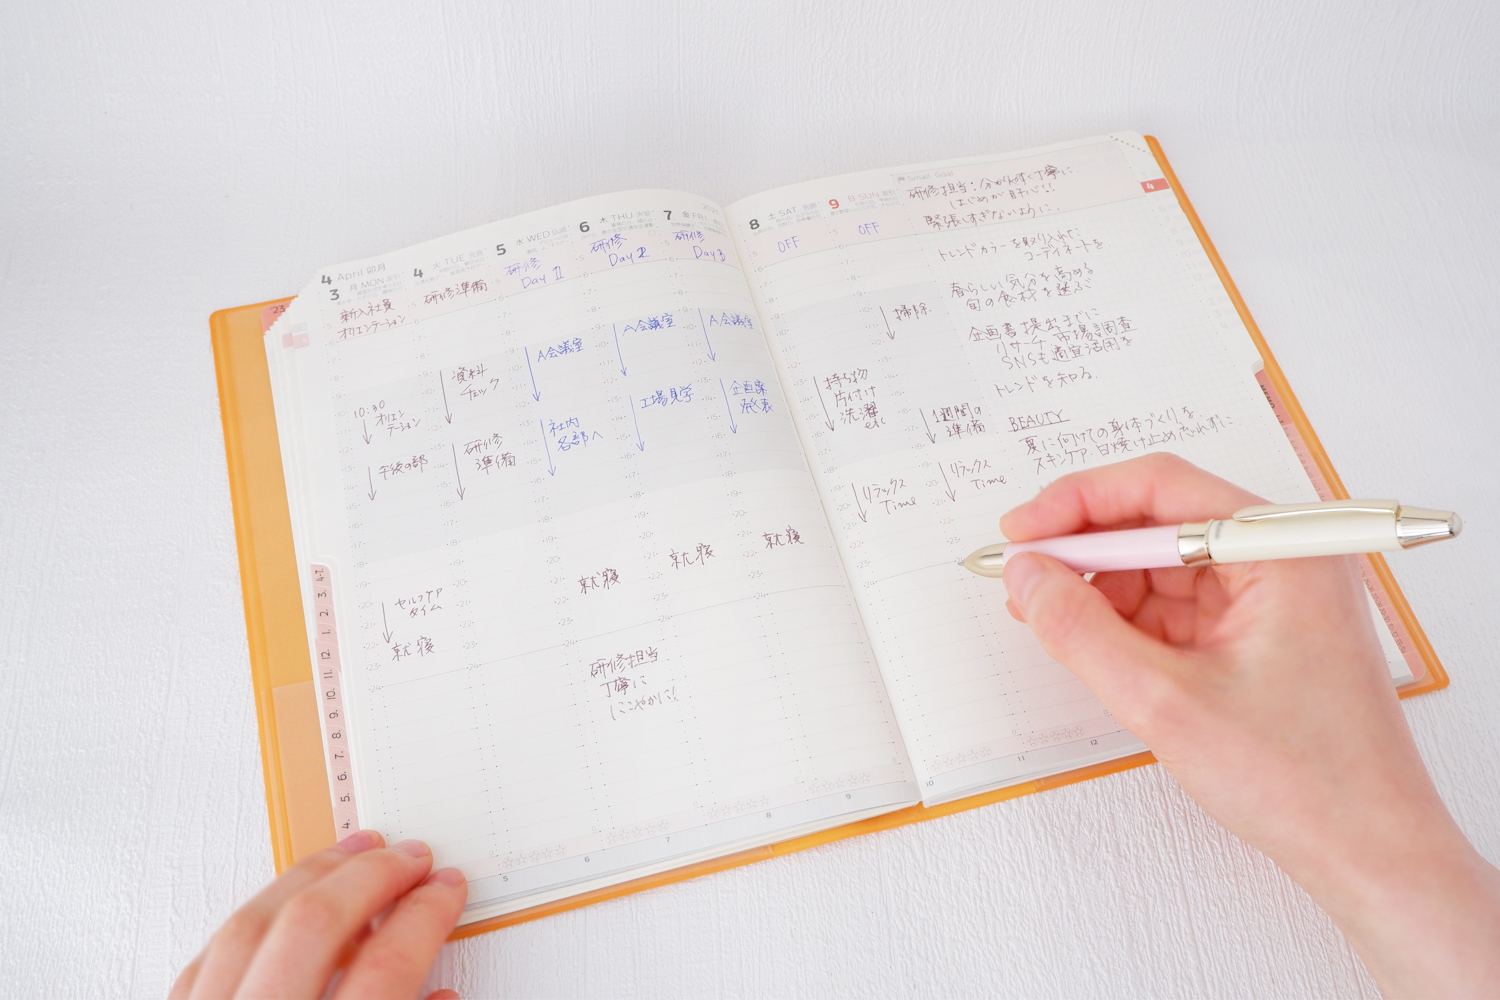 4 April 卯月
3 月 MON
4 火 TUE
5 水 WED
6 木 THU
7 金 FRI
8 土 SAT
9 日 SUN
新入社員
オリエンテーション
10:30
オリエン
テーション
午後の部
セルフケア
タイム
就寝
研修準備
資料
チェック
研修
準備
研修
Day 1
A会議室
社内
各部へ
研修
Day 2
A会議室
工場見学
就寝
研修担当
丁寧に
にこやかに!
研修
Day 3
A会議室
企画案
発表
就寝
就寝
OFF
持ち物
片付け
洗濯
etc
リラックス
Time
OFF
掃除
1週間の
準備
リラックス
Time
Small Goal
研修担当:分かりやすく丁寧に。
はじめが肝心!!
緊張しすぎないように。
トレンドカラーを取り入れた
コーディネートを
春らしい気分を高める
旬の食材を選ぶ
企画書提出までに
リサーチ 市場調査
SNSも適宜活用を
トレンドを知る。
BEAUTY
夏に向けての身体づくりを
スキンケア・日焼け止め忘れずに
4
23
4. 5. 6. 7. 8. 9. 10. 11. 12. 1. 2. 3. 4.
5
6
7
8
9
10
11
12